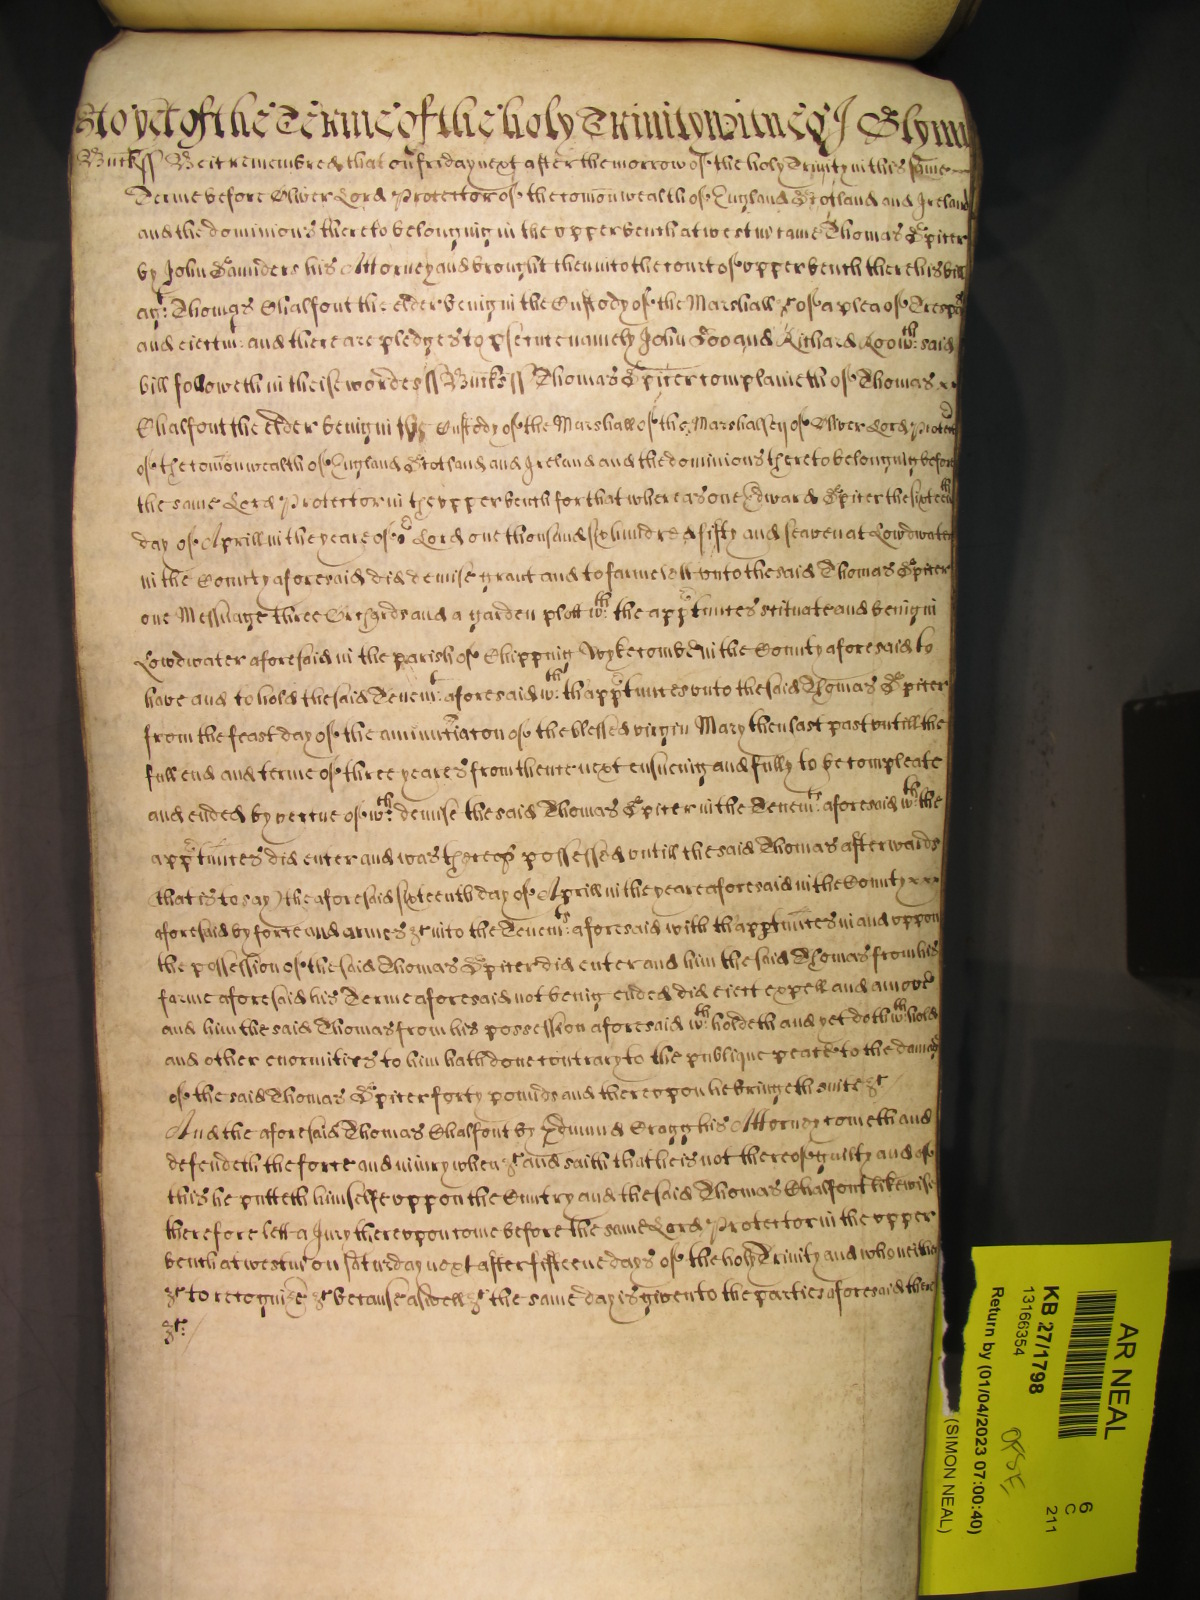 As yet of the Terme of the holy Trinity Witnes J Glynn
Bucks ss Be it remembred that on friday next after the morrow of the holy Trinity in this same
Terme before Oliver Lord Protector of the comonwealth of England Scotland and Ireland
and the dominions thereto belonging in the upper bench at westmr came Thomas Spicer
by John Saunders his Attorney and brought then into the court of upper bench there his bill
agt. Thomas Chalfont the elder being in the Custody of the Marshall &c of a plea of Tresps
and eiectmt. and there are pledges to psecute namely John Doo and Richard Roo wch. said
bill followeth in theise wordes ss Bucks ss Thomas Spicer complaineth of Thomas
Chalfont the elder being in the Custody of the Marshall of the Marshalsey of Oliver Lord Protect
of the comonwealth of England Scotland and Ireland and the dominions thereto belonging before
the same Lord Protector in the upper bench for that whereas one Edward Spicer the sixteenth
day of Aprill in the yeare of or Lord one thousand six hundred fifty and seaven at Lowdwater
in the County aforesaid did demise grant and to farme lett unto the said Thomas Spicer
one Messuage three Orchards and a garden plott wth. the apptunces scituate and being in
Lowdwater aforesaid in the parish of Chipping Wykecombe in the County aforesaid to
have and to hold the said Tenemt. aforesaid wth. thapptunces unto the said Thomas Spicer
from the feast day of the annuntiacon of the blessed virgin Mary then last past untill the
full end and terme of three yeares from thence next ensueing and fully to be compleate
and ended by vertue of wch. demise the said Thomas Spicer in the Tenemts. aforesaid wth. the
apptunces did enter and was thereof possessed untill the said Thomas afterwards
(that is to say) the aforesaid sixteenth day of Aprill in the yeare aforesaid in the County
aforesaid by force and armes &c into the Tenemts. aforesaid with thapptunces in and uppon
the possession of the said Thomas Spicer did enter and him the said Thomas from his
farme aforesaid his Terme aforesaid not being ended did eiect expell and amove
and him the said Thomas from his possession aforesaid wth. holdeth and yet doth wth. hold
and other enormities to him hath done contrary to the publique peace to the damag
of the said Thomas Spicer forty pounds and thereupon he bringeth suite &c
And the aforesaid Thomas Chalfont by Edmund Cragg his Attorney cometh and
defendeth the force and iniury when &c and saith that he is not thereof guilty and of
this he putteth himselfe uppon the Cuntry and the said Thomas Chalfont likewise
therefore lett a Jury thereupon come before the same Lord Protector in the upper
bench at westmr on saturday next after fifteene days of the holy Trinity and who neither
&c to recognize &c because aswell &c the same day is given to the parties aforesaid there
&c.
AR NEAL
KB 27/1798
13166354
Return by (01/04/2023 07:00:40)
(SIMON NEAL)
6
C
211